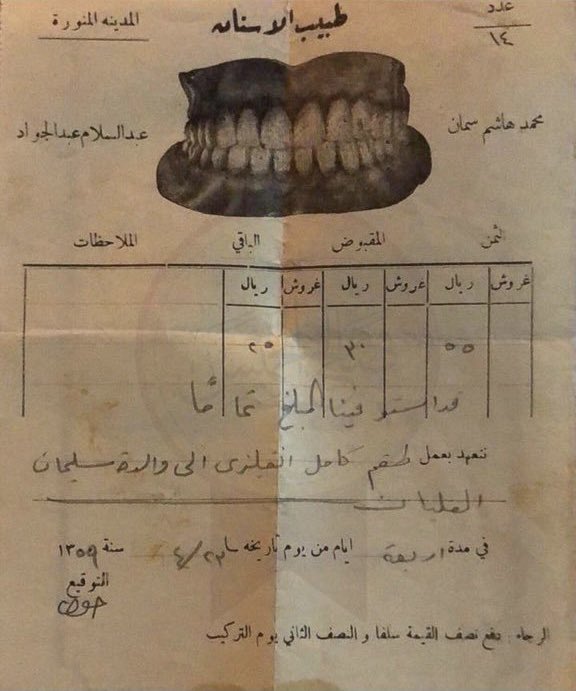 عدد
١٤
طبيب الاسنان
المدينه المنورة
محمد هاشم سمان
عبدالسلام عبدالجواد
الثمن المقبوض الباقي الملاحظات
غروش ريال غروش ريال غروش ريال
٥٥ ٣٠ ٢٥
قد استوفينا المبلغ تماما
نتعهد بعمل طقم كامل انقليزى الى والدة سليمان
في مدة اربعة ايام من يوم تاريخه ٤/٢٣ سنة ١٣٥٩
التوقيع
الرجاء دفع نصف القيمة سلفا و النصف الثاني يوم التركيب